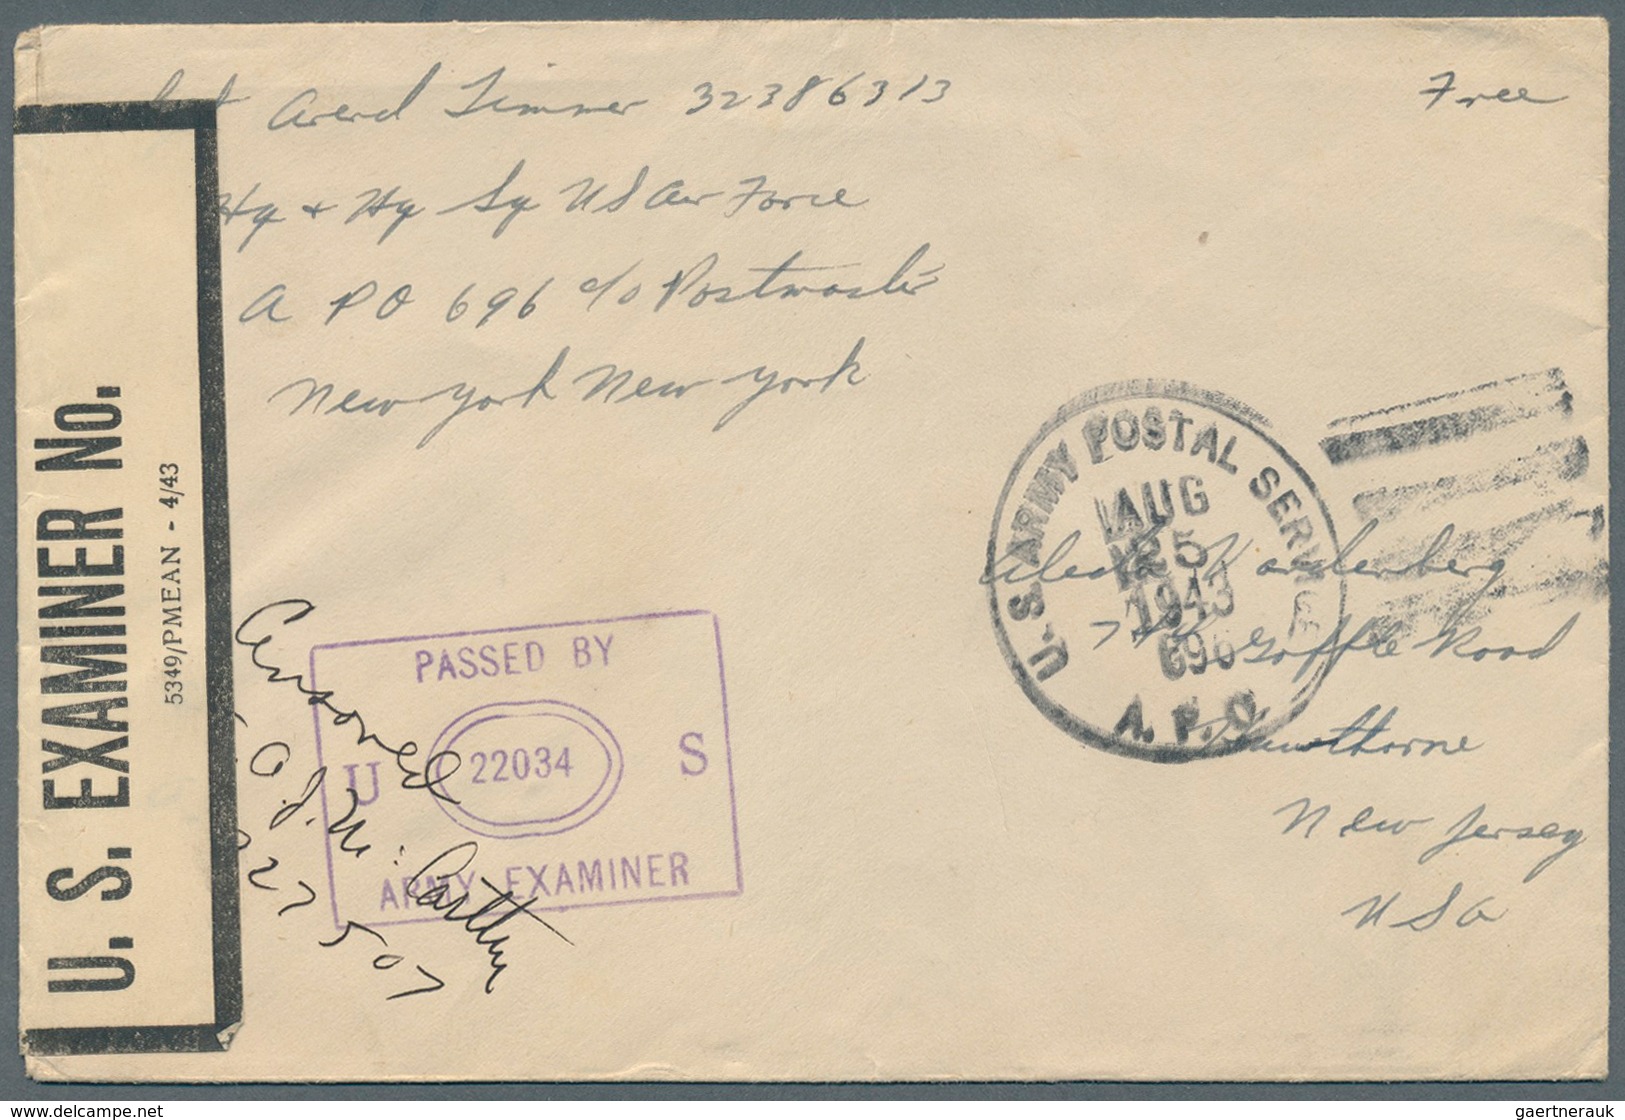 Arend Timmer 32386313
Free
Hq + Hq Sq US Air Force
A PO 696 c/o Postmaster
New York New York
U. S. EXAMINER No.
5349/PMEAN - 4/43
U.S. ARMY POSTAL SERVICE
AUG
25
1943
696
A. P. O.
Kardenberg
Goffle Road
Hawthorne
New Jersey
USA
PASSED BY
U 22034 S
ARMY EXAMINER
Censored
J. Mc Carthy
27507
www.delcampe.net
gaertnerauk